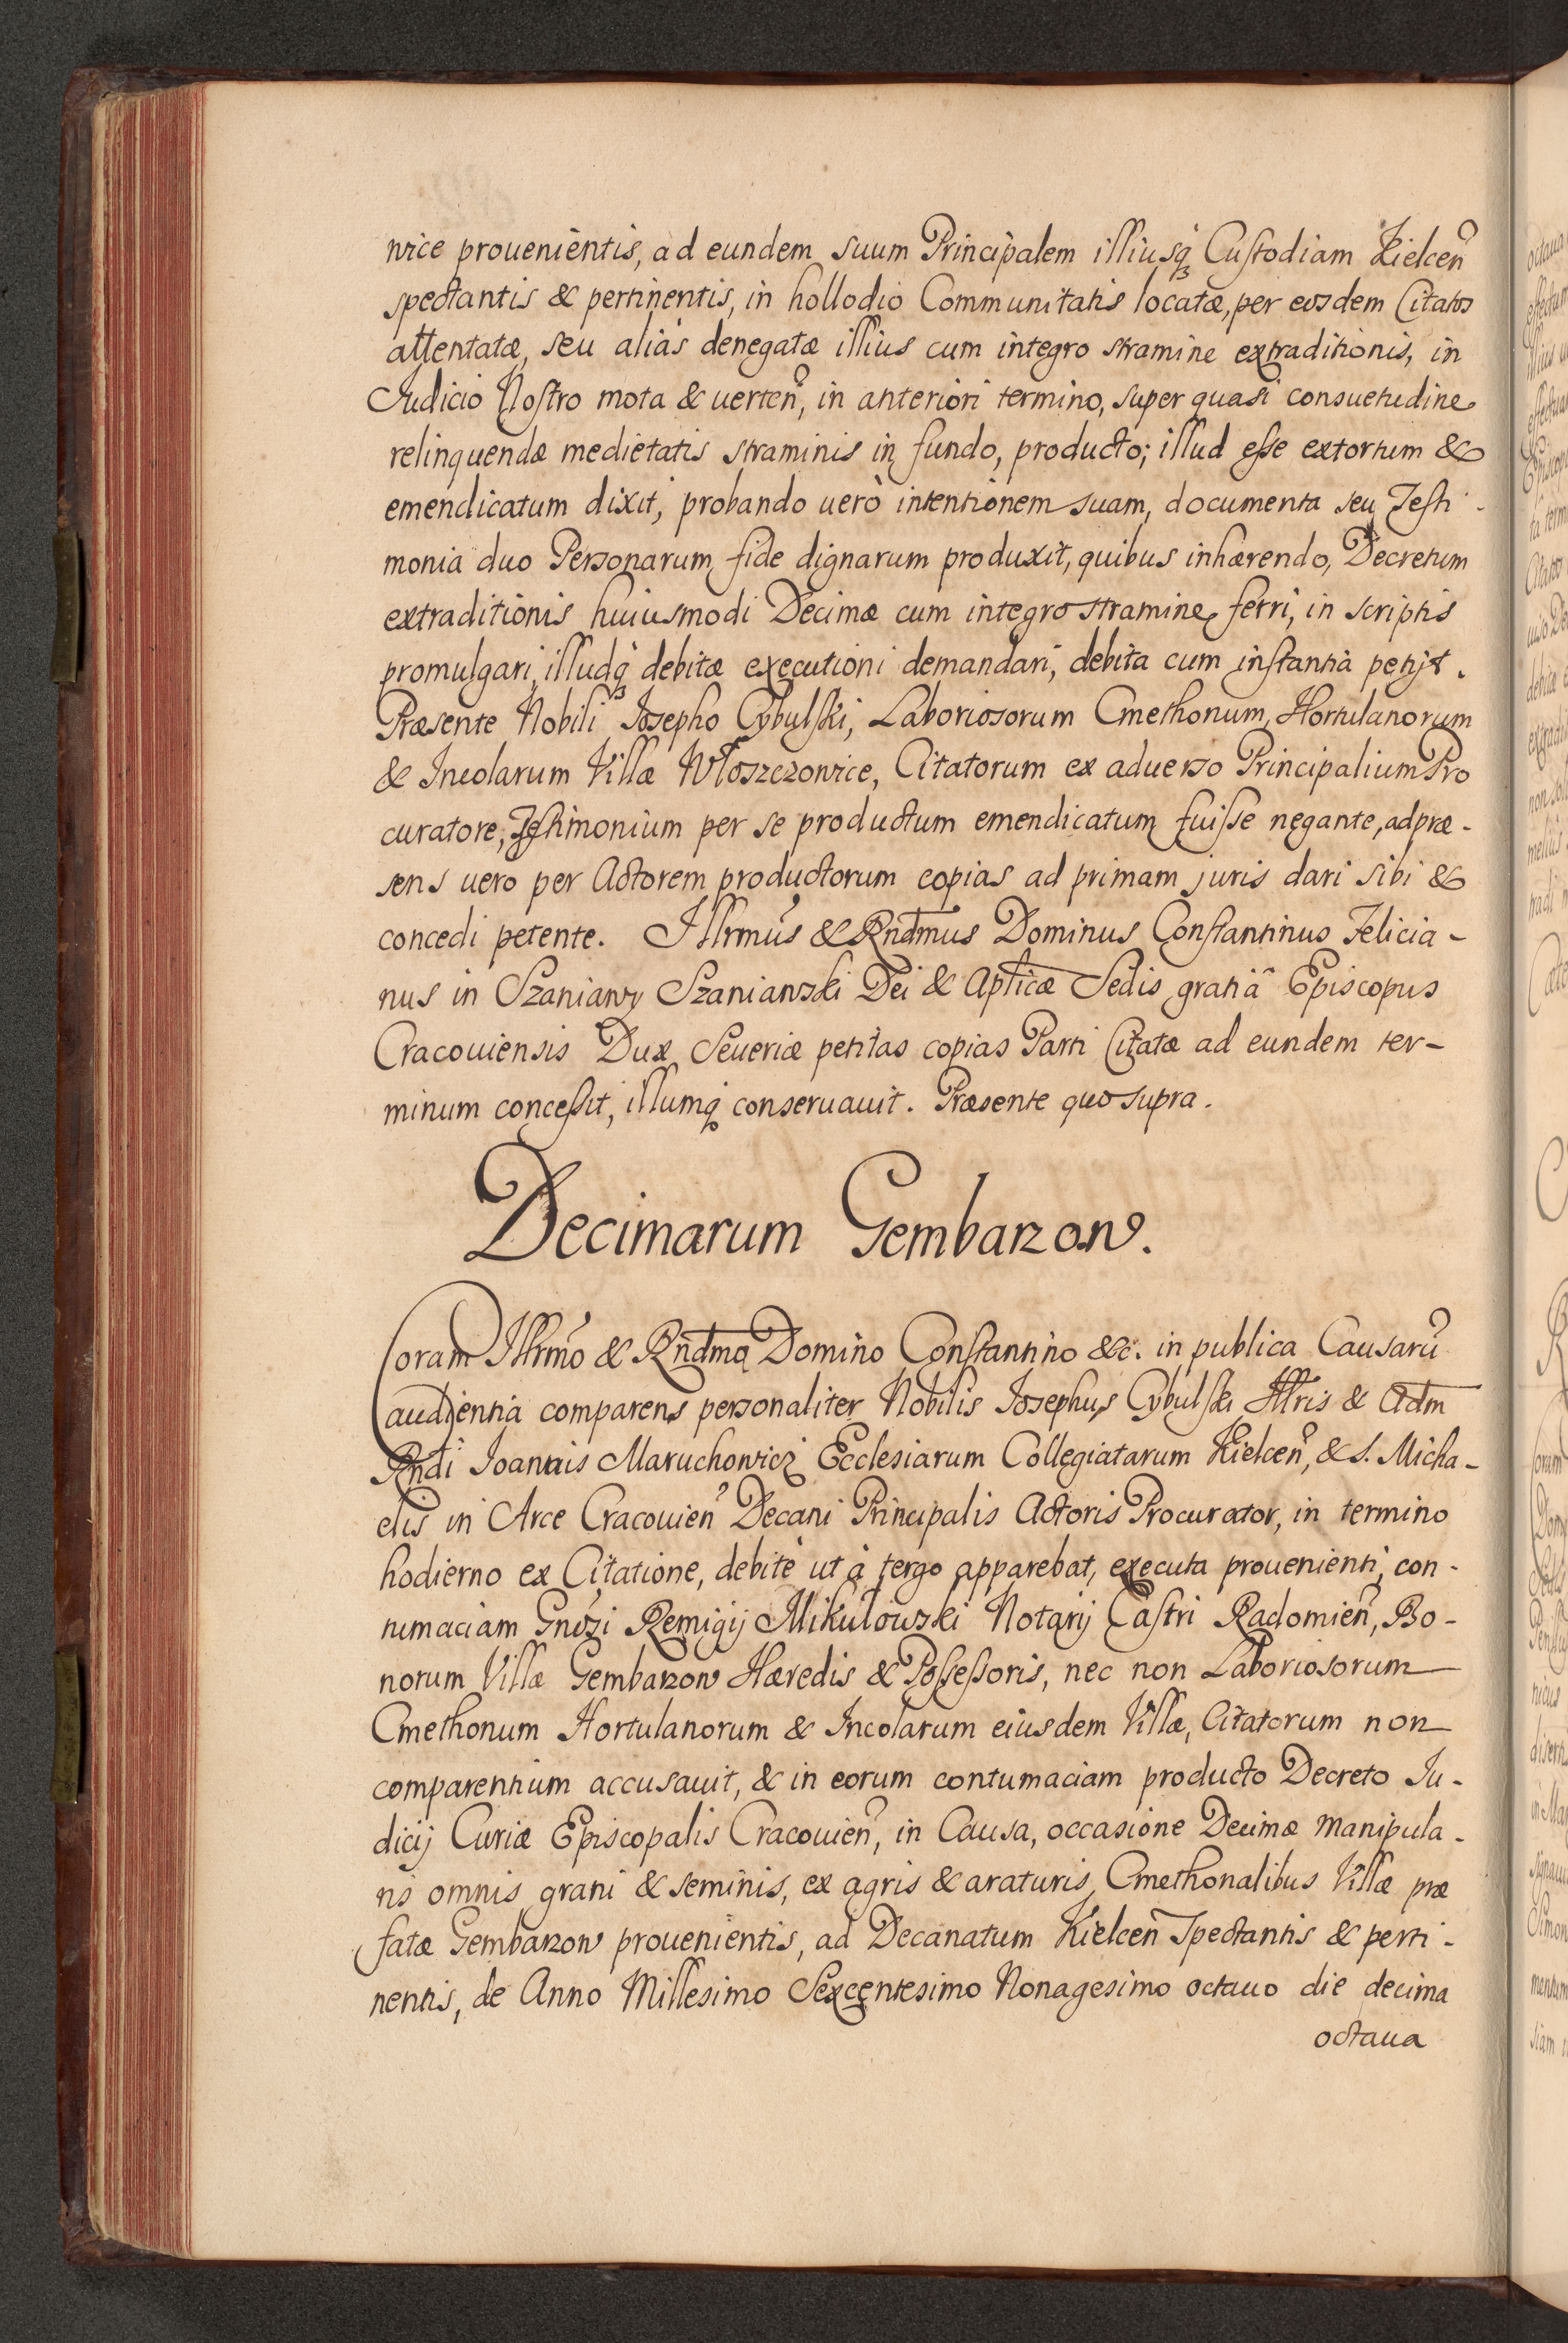 wice prouenientis, ad eundem suum Principalem illiusq́ꝫ Custodiam Kielceñ
spectantis & pertinentis, in hollodio Communitatis locatæ, per eosdem Citatos
attentatæ, seu aliàs denegatæ illius cum integro stramine extraditionis, in
Iudicio Nostro mota & uerteñ, in anteriori termino, super quasi consuetudine
relinquendæ medietatis straminis in fundo, producto; illud esse extortum &
emendicatum dixit, probando uerò intentionem suam, documenta seu Testi-
monia duo Personarum fide dignarum produxit, quibus inhærendo, Decretum
extraditionis huiusmodi Decimæ cum integro stramine ferri, in scriptis
promulgari, illudq́ꝫ debitæ executioni demandari, debita cum instantia petijt.
Præsente Nobili Iosepho Cybulski, Laboriosorum Cmethonum, Hortulanorum
& Incolarum Villæ Włoszczowice, Citatorum ex aduerso Principalium Pro
curatore, Testimonium per se productum emendicatum fuisse negante, ad præ-
sens uero per Actorem productorum copias ad primam juris dari sibi &
concedi petente. Illrmus & Rndmus Dominus Constantinus Felicia-
nus in Szaniawy Szaniawski Dei & Aplicæ Sedis gratiâ Episcopus
Cracouiensis Dux Seueriæ petitas copias Parti Citatæ ad eundem ter-
minum concessit, illumq́ꝫ conseruauit. Præsente quo supra.
Decimarum Gembarzow.
Coram Illrmo & Rndmo Domino Constantino &c. in publica Causarũ
audientia comparens personaliter Nobilis Iosephus Cybulski Illris & Adm
Rndi Ioannis Maruchowicz Ecclesiarum Collegiatarum Kielceñ, & S. Micha-
elis in Arce Cracouieñ Decani Principalis Actoris Procurator, in termino
hodierno ex Citatione, debitè ut à tergo apparebat, executa prouenienti, con-
tumaciam Gnosi Remigij Mikułowski Notarij Castri Radomieñ, Bo-
norum Villæ Gembarzow Hæredis & Possessoris, nec non Laboriosorum
Cmethonum Hortulanorum & Incolarum eiusdem Villæ, Citatorum non
comparentium accusauit, & in eorum contumaciam producto Decreto Iu-
dicij Curiæ Episcopalis Cracouieñ, in Causa, occasione Decimæ manipula-
ris omnis grani & seminis, ex agris & araturis Cmethonalibus Villæ præ
fatæ Gembarzow prouenientis, ad Decanatum Kielceñ Spectantis & perti-
nentis, de Anno Millesimo Sexcentesimo Nonagesimo octauo die decima
octaua